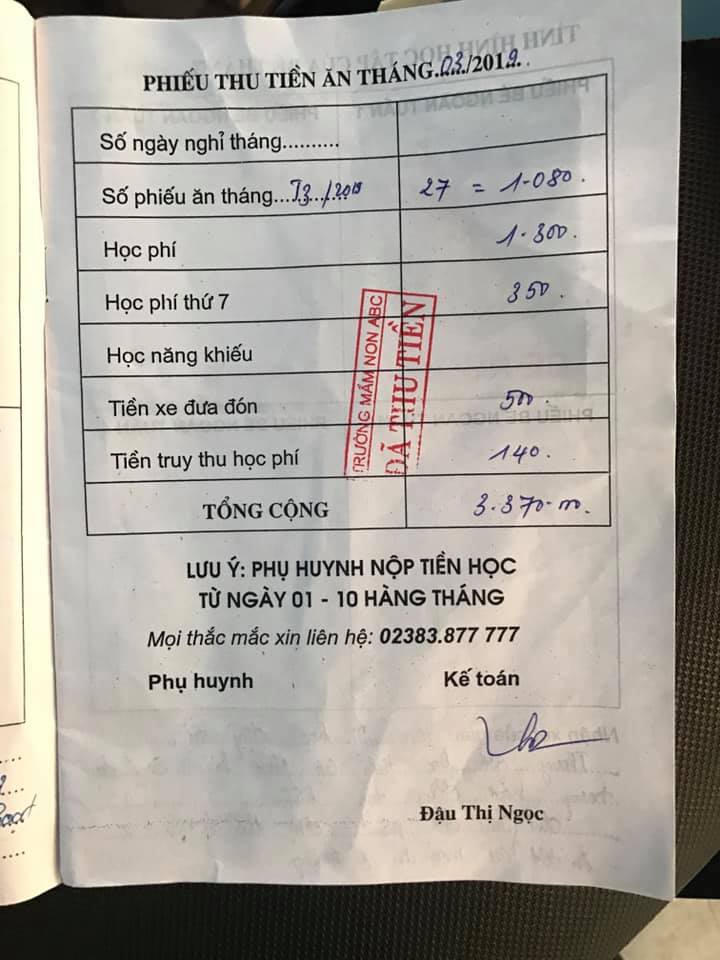 PHIẾU THU TIỀN ĂN THÁNG.03./2019.
Số ngày nghỉ tháng..........
Số phiếu ăn tháng...T3.../2019 27 = 1.080.
Học phí 1.300.
Học phí thứ 7 350.
Học năng khiếu
Tiền xe đưa đón 500.
Tiền truy thu học phí 140.
TỔNG CỘNG 3.370.
TRƯỜNG MẦM NON ABC
ĐÃ THU TIỀN
LƯU Ý: PHỤ HUYNH NỘP TIỀN HỌC
TỪ NGÀY 01 - 10 HÀNG THÁNG
Mọi thắc mắc xin liên hệ: 02383.877 777
Phụ huynh Kế toán
Đậu Thị Ngọc